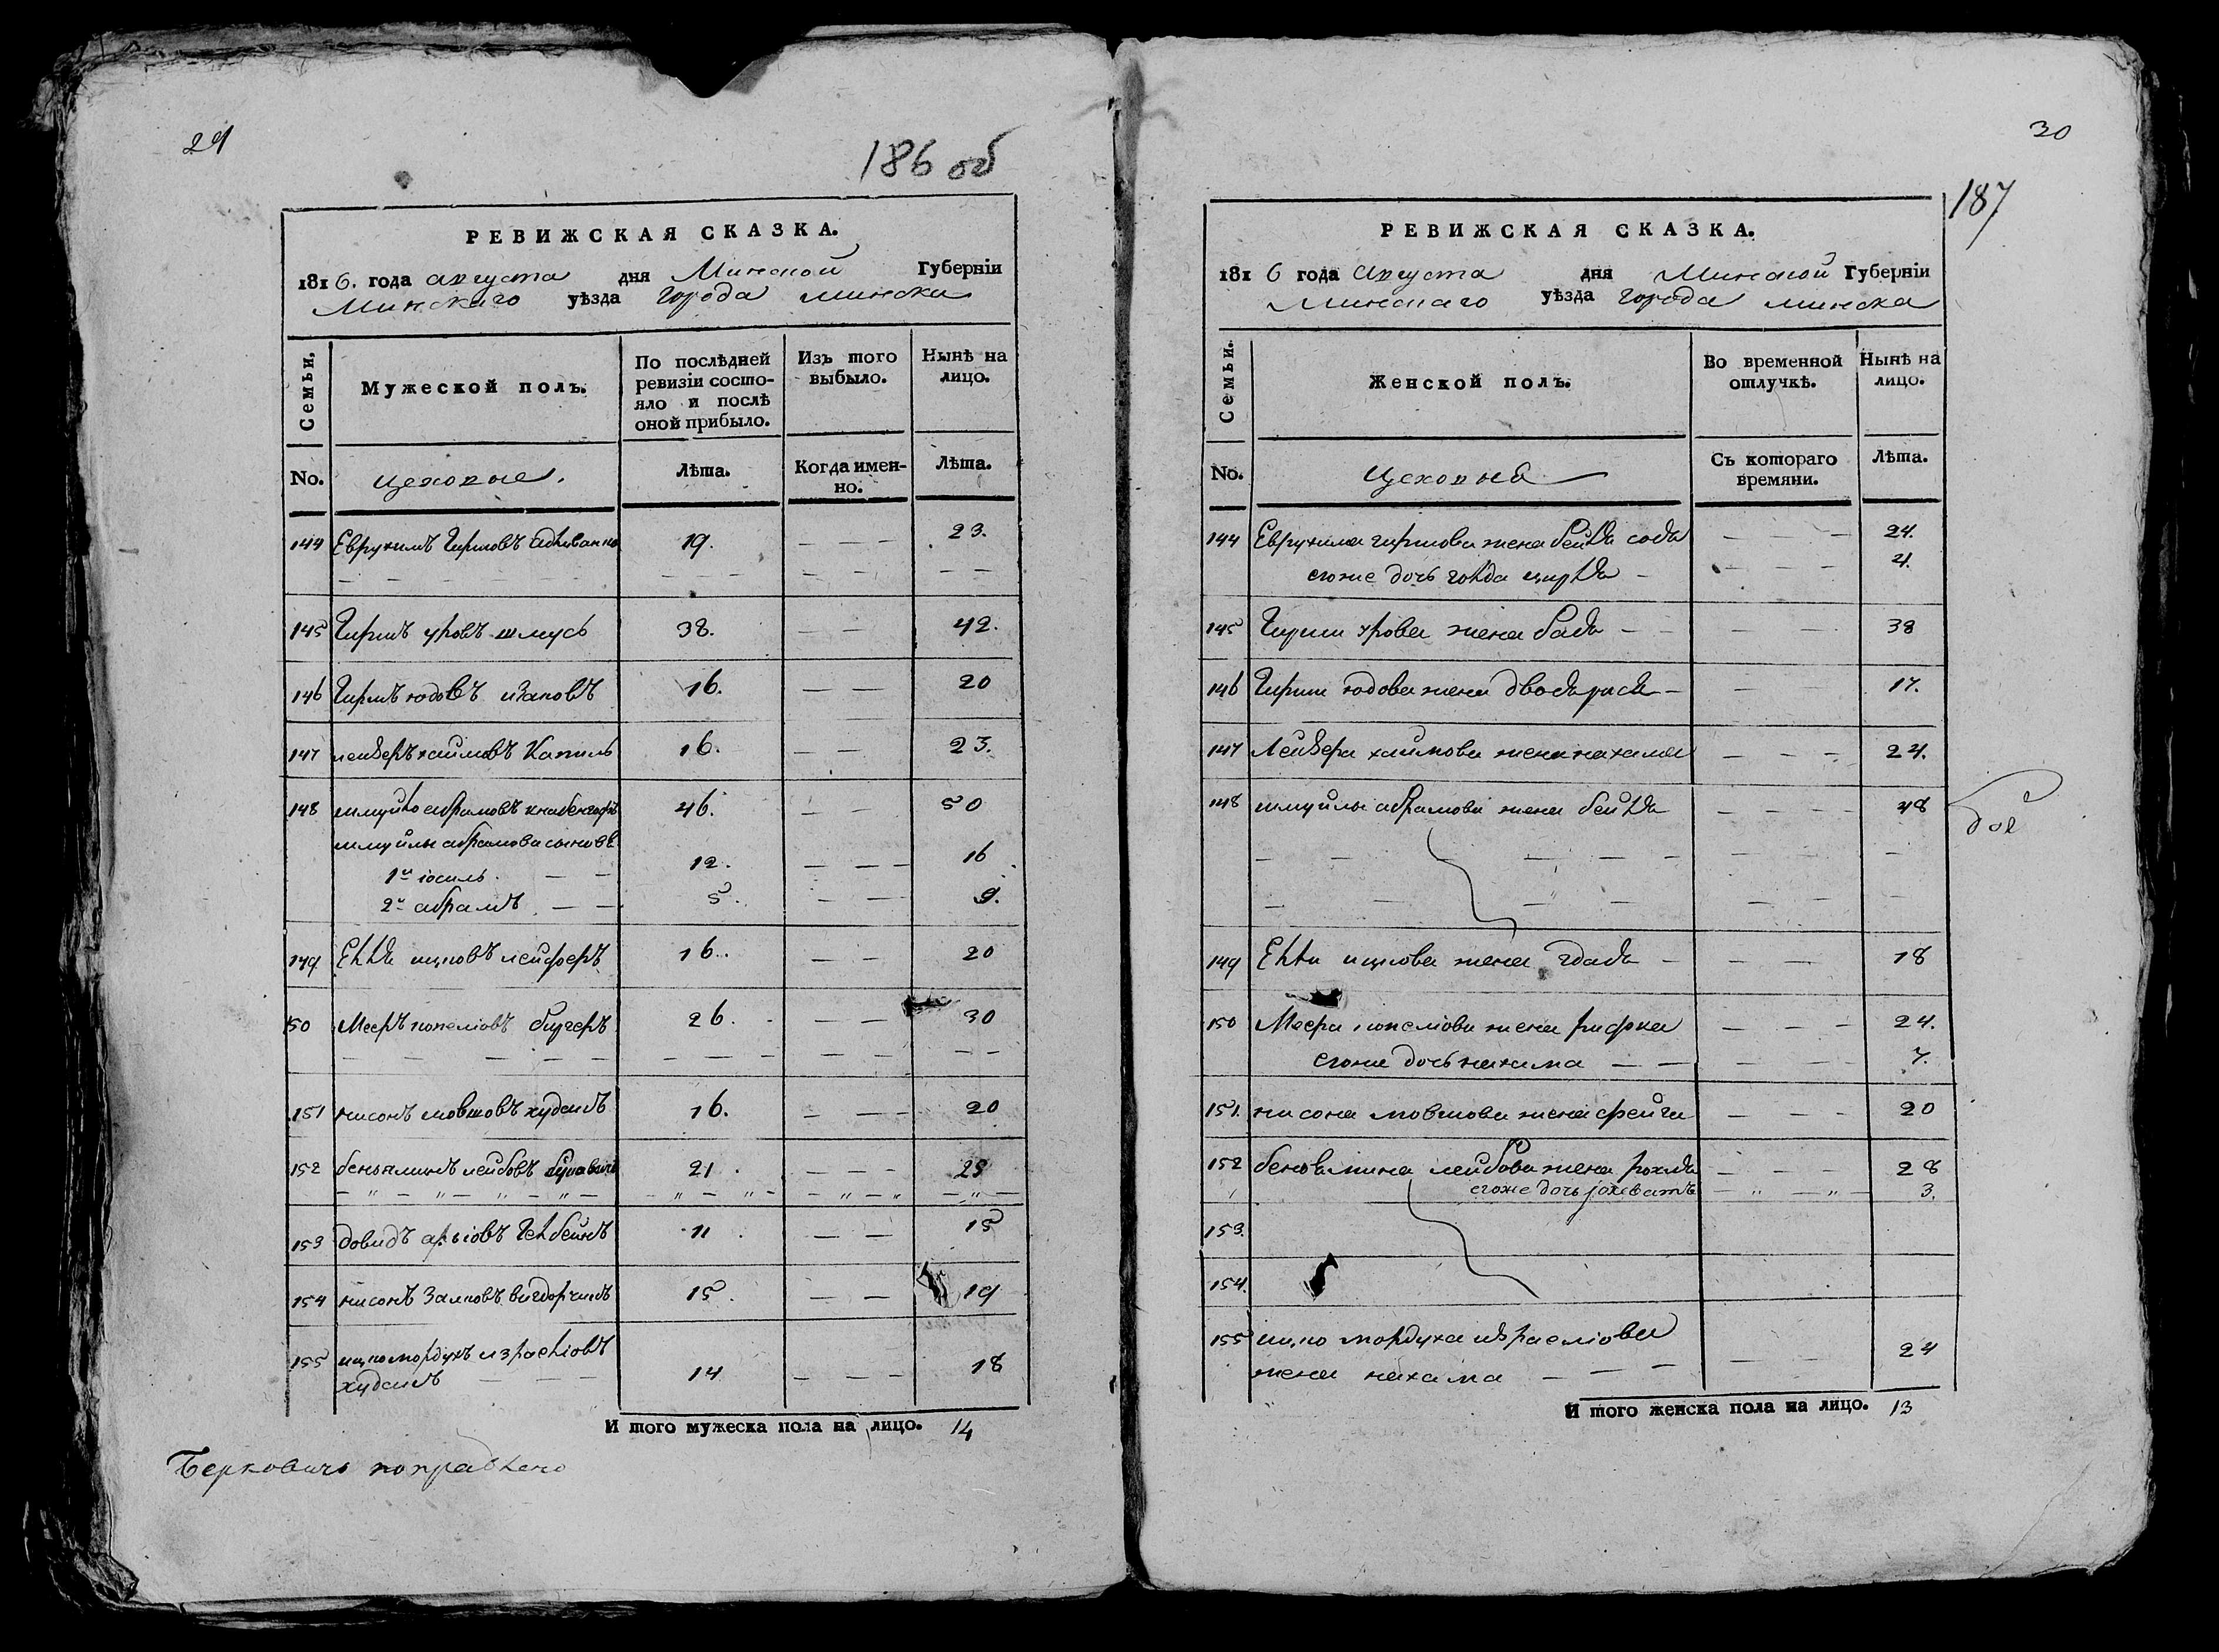 29
186 об
РЕВИЖСКАЯ СКАЗКА.
1816. года августа дня Минской Губерніи
Минскаго уѣзда города минска
Семьи.
Мужеской полъ.
По послѣдней ревизіи состо-
яло и послѣ оной прибыло.
Изъ того выбыло.
Нынѣ на лицо.
No. цеховые. Лѣта. Когда имен-
но. Лѣта.
144 Еврухимъ Гиршовъ 19. — — — 23.
145 Гиршъ уровъ шмусь 38. — — 42.
146 Гиршъ юдовъ 16. — — 20
147 лейзеръ хаимовъ Капиль 16. — — 23.
148 шмуйло абрамовъ 46. — — 50
шмуйлы абрамова сыновъя
1й іосиль. — — 12. — — — 16
2й абрамъ — — 5. — — — 9.
149 Елля ицковъ лейферъ 16. — — 20
150 Мееръ бигеръ 26. — — 30
151 нисонъ мовшовъ худинъ 16. — — — 20
152 беньяминъ лейбовъ 21. — — — 25
153 довидъ арыовъ Гельбейнъ 11. — — 15
154 нисонъ Залковъ вигдорчикъ 15. — — 19
155 ицко мордухъ израеліовъ
худинъ — — — 14 — — — 18
И того мужеска пола на лицо. 14
Берковичь поправлено
30
187
РЕВИЖСКАЯ СКАЗКА.
1816 года августа дня Минской Губерніи
Минскаго уѣзда города минска
Семьи.
Женской полъ.
Во временной отлучкѣ.
Нынѣ на лицо.
No. цеховые Съ котораго времяни. Лѣта.
144 Еврухима гиршова жена бейля сося — — — 24.
егоже дочь голда цирля — — — — 4.
145 Гирши урова жена бася — — — — 38
146 Гирши юдова жена двося — — — 17.
147 Лейзера хаимова жена нахама — — — 24.
148 шмуйлы абрамова жена бейля — — — — 48
149 Елли ицкова жена — — — — 18
150 Меера жена рифка — — — 24.
егоже дочь нахама — — — — — 7.
151. нисона мовшова жена фейга — — — 20
152 беньямина лейбова жена рохля — — — 28
егоже дочь 3.
153.
154.
155 ицко мордуха израеліова
жена нахама — — — — — 24
И того женска пола на лицо. 13